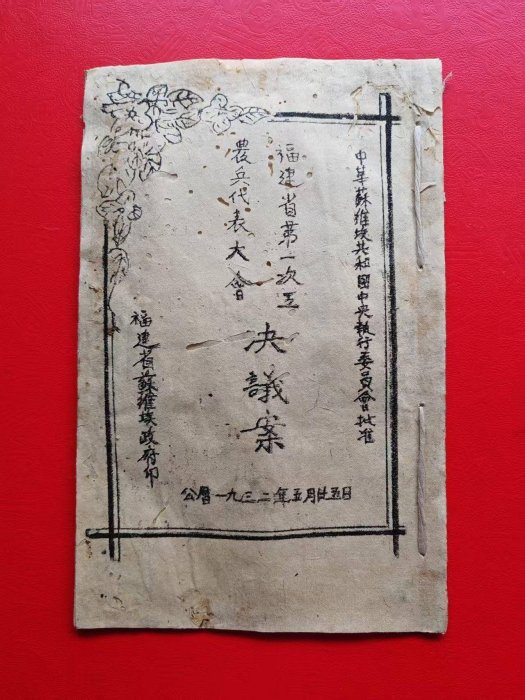 中華蘇維埃共和國中央執行委員會批准
福建省第一次工
農兵代表大會
决議案
福建省蘇維埃政府印
公曆一九三二年五月廿五日